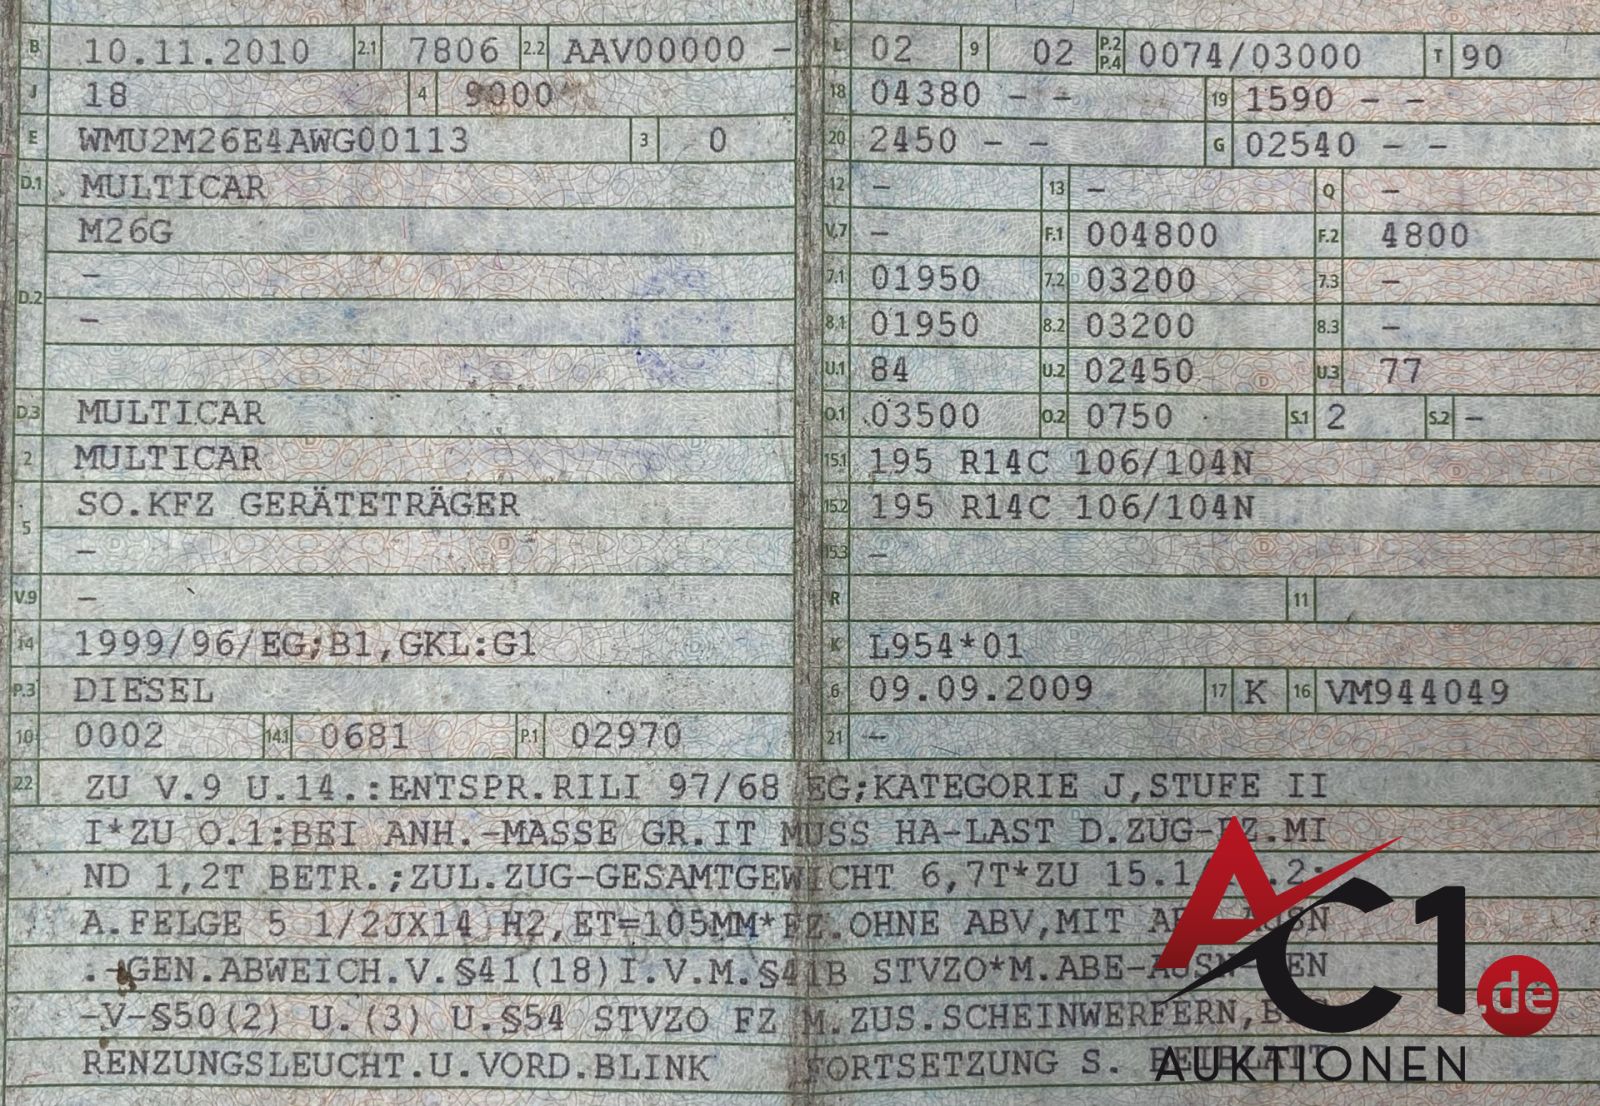 B 10.11.2010 2.1 7806 2.2 AAV00000 -
J 18 4 9000
E WMU2M26E4AWG00113 3 0
D.1 MULTICAR
M26G
-
D.2
-
D.3 MULTICAR
2 MULTICAR
SO.KFZ GERÄTETRÄGER
5
-
V.9 -
14 1999/96/EG;B1,GKL:G1
P.3 DIESEL
10 0002 14.1 0681 P.1 02970
L 02 9 02 P.2 P.4 0074/03000 T 90
18 04380 - - 19 1590 - -
20 2450 - - G 02540 - -
12 - 13 - Q -
V.7 - F.1 004800 F.2 4800
7.1 01950 7.2 03200 7.3 -
8.1 01950 8.2 03200 8.3 -
U.1 84 U.2 02450 U.3 77
O.1 03500 O.2 0750 S.1 2 S.2 -
15.1 195 R14C 106/104N
15.2 195 R14C 106/104N
15.3 -
R 11
K L954*01
6 09.09.2009 17 K 16 VM944049
21 -
22 ZU V.9 U.14.:ENTSPR.RILI 97/68 EG;KATEGORIE J,STUFE II
I*ZU O.1:BEI ANH.-MASSE GR.IT MUSS HA-LAST D.ZUG-FZ.MI
ND 1,2T BETR.;ZUL.ZUG-GESAMTGEWICHT 6,7T*ZU 15.1 .2:
A.FELGE 5 1/2JX14 H2,ET=105MM*FZ.OHNE ABV,MIT
.-GEN.ABWEICH.V.§41(18)I.V.M.§41B STVZO*M.ABE-
-V-§50(2) U.(3) U.§54 STVZO FZ M.ZUS.SCHEINWERFERN,
RENZUNGSLEUCHT.U.VORD.BLINK FORTSETZUNG S. BEIBLATT
AC1.de
AUKTIONEN